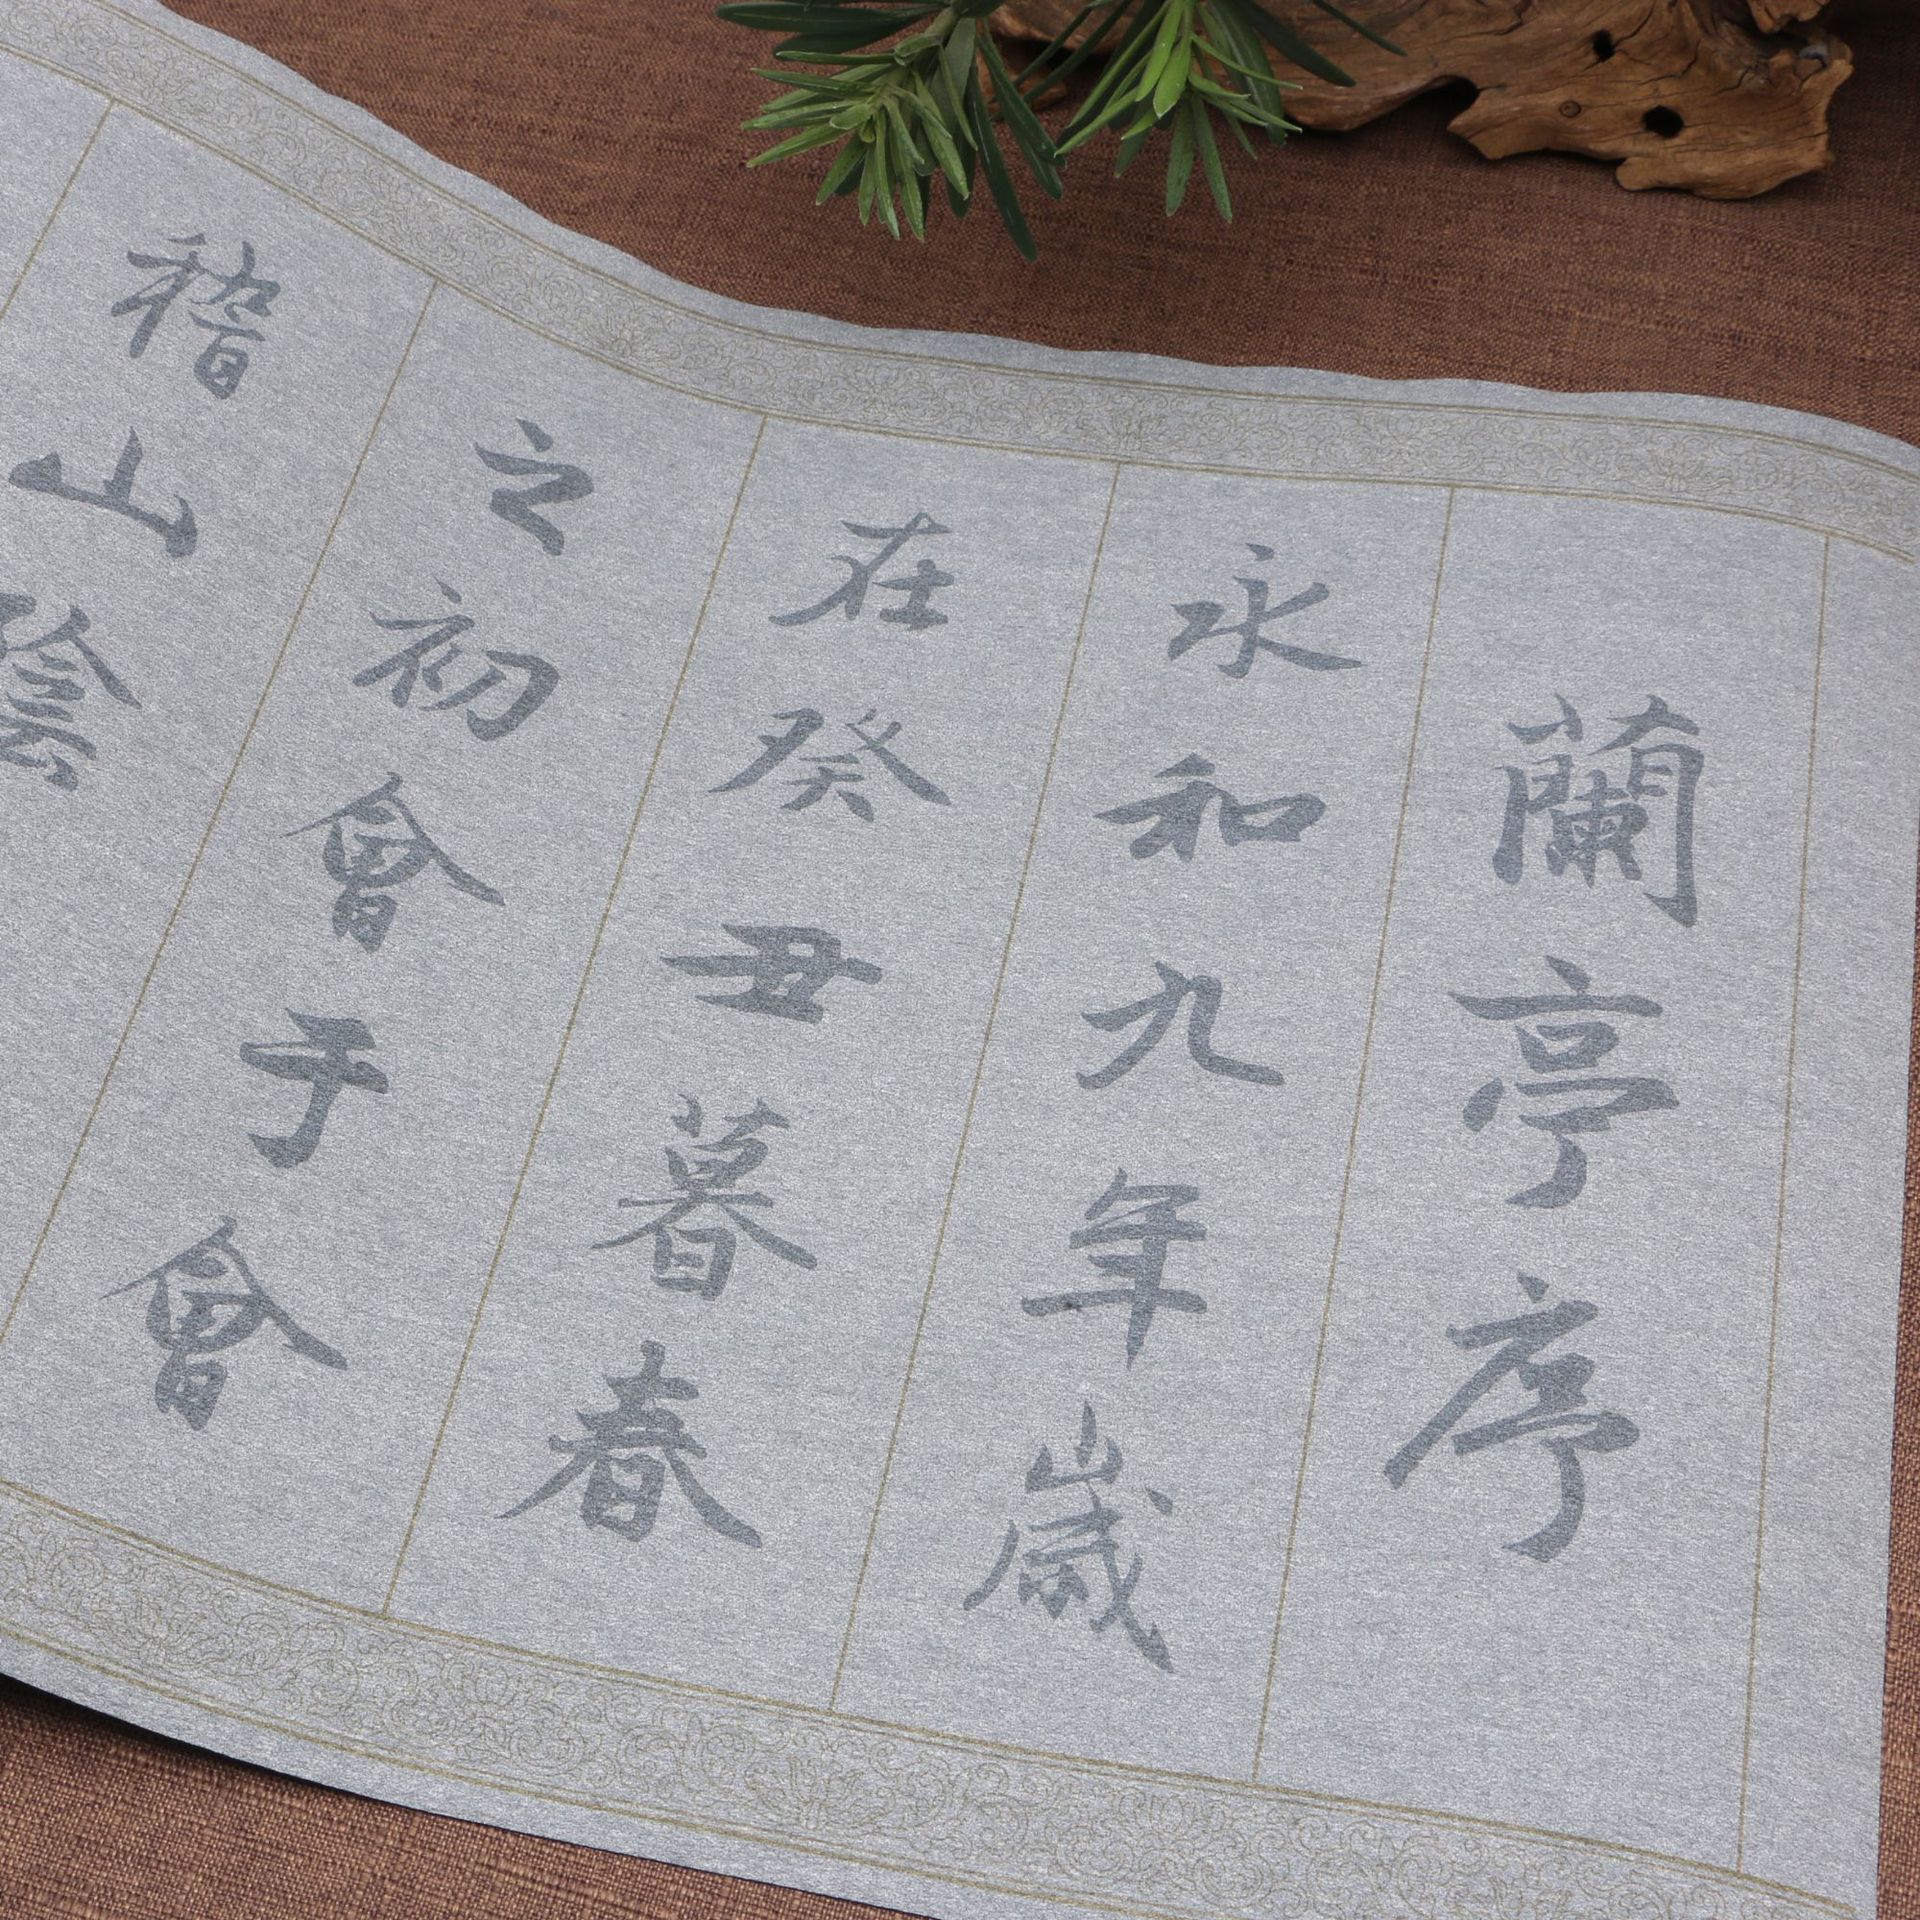 蘭亭序
永和九年歲
在癸丑暮春
之初會于會
稽山陰